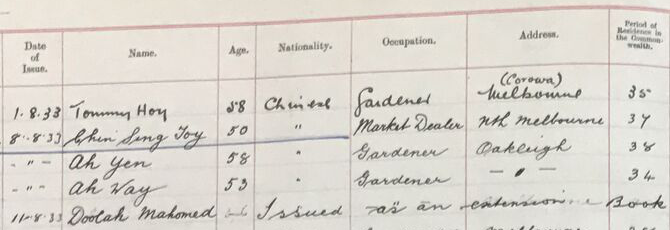 Date of Issue. Name. Age. Nationality. Occupation. Address. Period of Residence in the Commonwealth.
(Corowa)
1.8.33 Tommy Hoy 58 Chinese Gardener Melbourne 35
8.8.33 Chin Sing Joy 50 " Market Dealer Nth Melbourne 37
- " - Ah Yen 58 " Gardener Oakleigh 38
- " - Ah Way 53 " Gardener - " - 34
11.8.33 Doolah Mahomed Issued as an extension Book